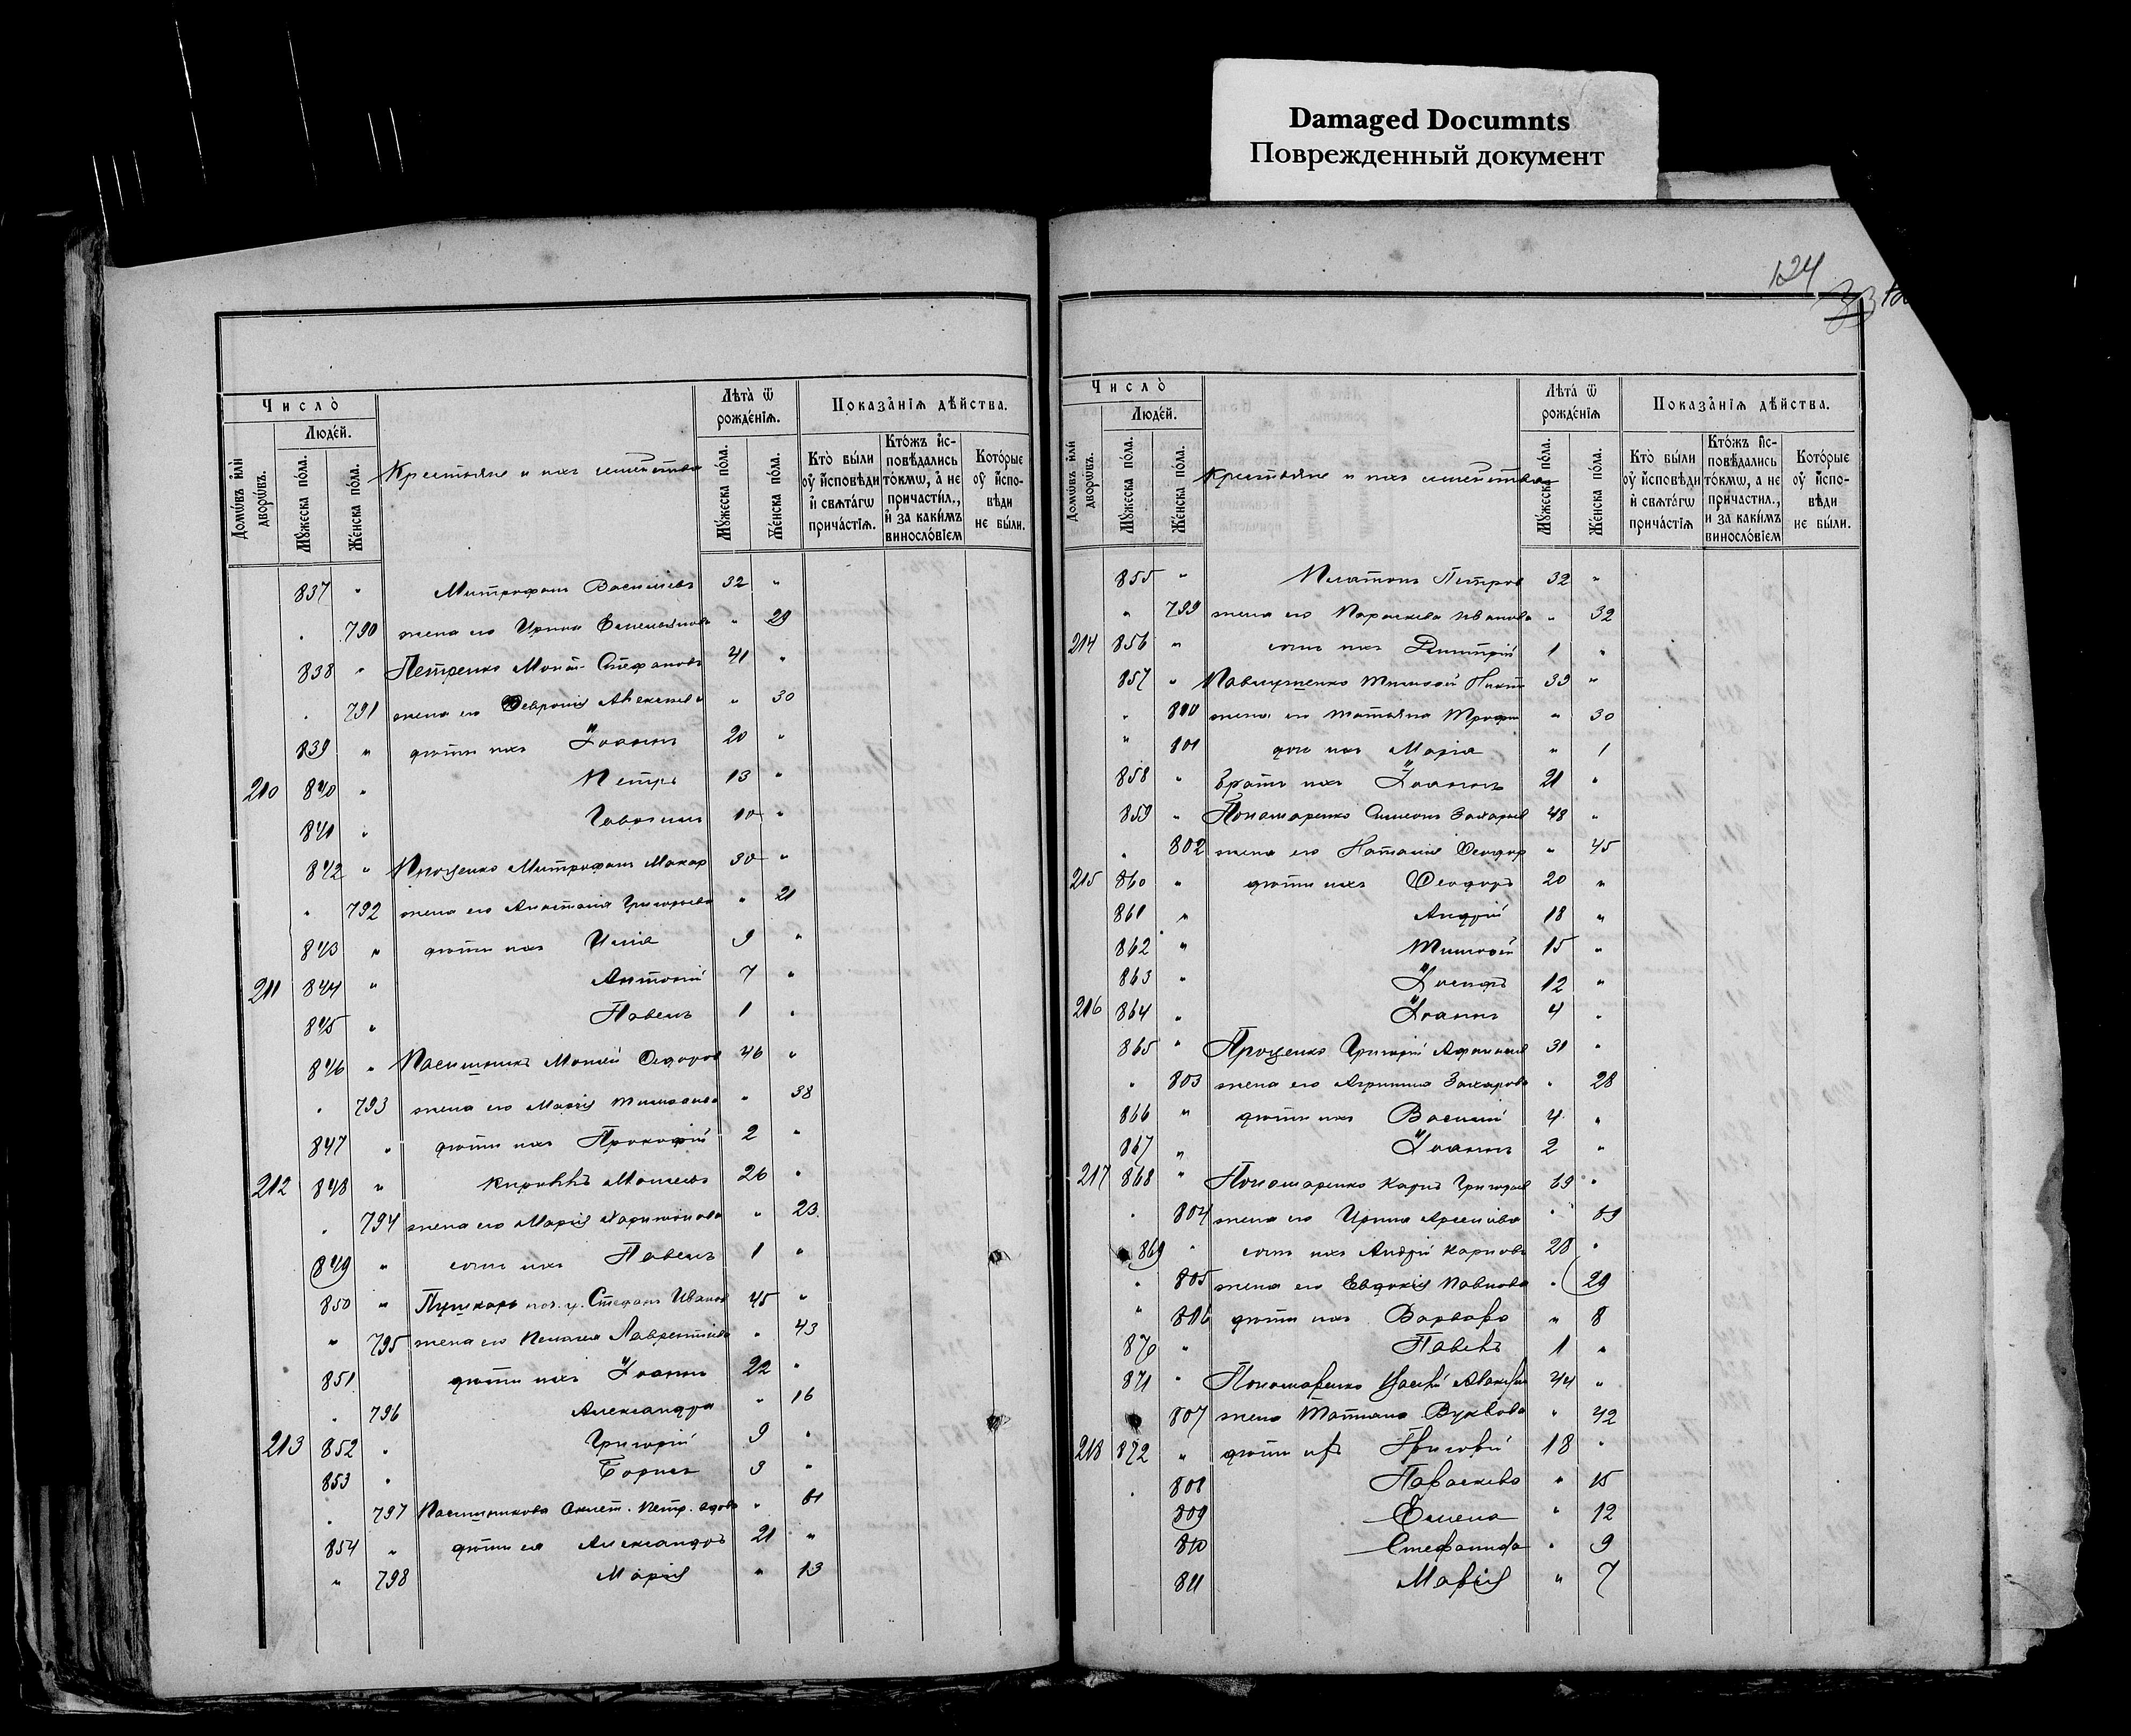 Damaged Documnts
Поврежденный документ
124
33
Число̀
Людéй.
Домѡ́въ и҆лѝ дворѡ́въ.
Мꙋ́жеска по́ла.
Же́нска по́ла.
Крестьяне и ихъ семейства
Лѣта̀ ѿ рожде́нїѧ.
Мꙋ́жеска по́ла.
Же́нска по́ла.
Показа̑нїѧ дѣ́йства.
Кто̀ бы́ли оу҆ и҆сповѣди и҆ свѧта́гѡ прича́стїѧ.
Кто́жъ и҆сповѣдались то́кмѡ, а҆ не причасти́л., и҆ за каки́мъ виносло́вїем
Кото́рые оу҆ и҆спо-вѣди не бы́ли.
837 " Митрофанъ Васильевъ 32 "
" 790 жена его Ирина Емельянова " 29
838 " Петренко Стефановъ 41 "
" 791 жена его Февронія Алексеева " 30
839 " дѣти ихъ Іоаннъ 20 "
210 840 " Петръ 13 "
841 " 10 "
842 " Проценко Митрофанъ Макар 30 "
" 792 жена его Анастасія Григорьева " 21
843 " дѣти ихъ Илія 9 "
211 844 " Антоній 7 "
845 " Павелъ 1 "
846 " Пасишникъ Моисей Федоров 46 "
" 793 жена его Марія " 38
847 " дѣти ихъ Прокофій 2 "
212 848 " Кириллъ Моисеевъ 26 "
" 794 жена его Марія Харитонова " 23
849 " сынъ ихъ Павелъ 1 "
850 " Пушкарь Стефанъ Иванов 45 "
" 795 жена его Пелагея Лаврентіева " 43
851 дѣти ихъ Іоаннъ 22 "
" 796 Александра " 16
213 852 " Григорій 9 "
853 " Борисъ 3 "
" 797 Пасишникова Петр. вдова " 61
854 " дѣти ея Александръ 21 "
" 798 Марія " 13
Число̀
Людéй.
Домѡ́въ и҆лѝ дворѡ́въ.
Мꙋ́жеска по́ла.
Же́нска по́ла.
Крестьяне и ихъ семейства
Лѣта́ ѿ рожде́нїѧ
Мꙋ́жеска по́ла.
Же́нска по́ла.
Показа̑нїѧ дѣ́йства.
Кто̀ бы́ли оу҆ и҆сповѣди и҆ свѧта́гѡ прича́стїѧ
Кто́жъ и҆сповѣдались то́кмѡ, а не причастил., и за каки́мъ виносло́вїем
Кото́рые оу҆ и҆спо-вѣди не бы́ли.
855 " Платонъ Петров 32 "
" 799 жена его Параскева Иванова " 32
214 856 " сынъ ихъ Димитрій 1 "
857 " Павлущенко Тимофей Никит 39 "
" 800 жена его Татьяна Трофим " 30
" 801 дочь ихъ Марія " 1
858 " братъ ихъ Іоаннъ 21 "
859 " Пономаренко Симеонъ Захарьев 48 "
" 802 жена его Наталія Феодор " 45
215 860 " дѣти ихъ Феодоръ 20 "
861 " Андрій 18 "
862 " Тимофей 15 "
863 " Іосифъ 12 "
216 864 " Іоаннъ 4 "
865 " Проценко Григорій Афанасьев 31 "
" 803 жена его Агрипина Захарова " 28
866 " дѣти ихъ Василій 4 "
867 " Іоаннъ 2 "
217 868 " Пономаренко Карпъ Григорьев 69 "
" 804 жена его Ирина Арсеньева " 69
869 " сынъ ихъ Андрій Карповъ 28 "
" 805 жена его Евдокія Павлова " 29
" 806 дѣти ихъ Варвара " 8
870 " Павелъ 1 "
871 " Пономаренко 44 "
" 807 жена Татіана " 42
218 872 " дѣти ихъ Григорій 18 "
" 808 Параскева " 15
809 Елена " 12
810 Стефанида " 9
811 Марія " 7